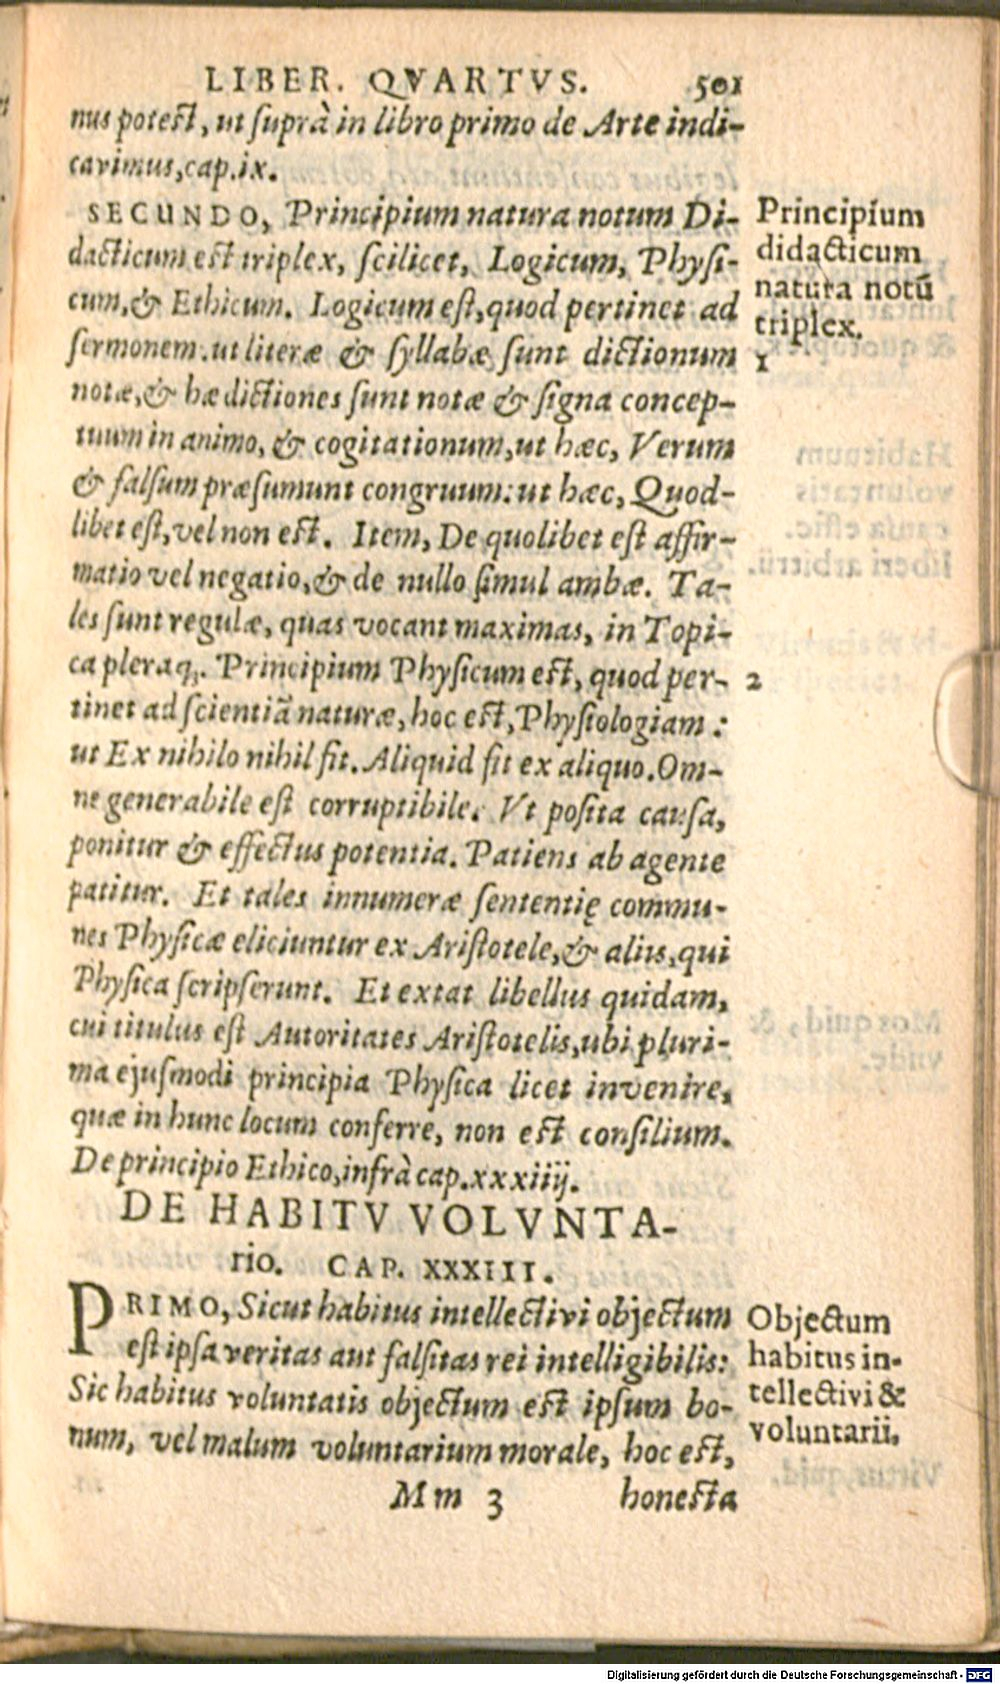 LIBER. QVARTVS. 501
nus potest, ut suprà in libro primo de Arte indi-
cavimus, cap. ix.
SECUNDO, Principium natura notum Di-
dacticum est triplex, scilicet, Logicum, Physi-
cum, & Ethicum. Logicum est, quod pertinet ad
sermonem. ut literæ & syllabæ sunt dictionum
notæ, & hæ dictiones sunt notæ & signa concep-
tuum in animo, & cogitationum, ut hæc, Verum
& falsum præsumunt congruum: ut hæc, Quod-
libet est, vel non est. Item, De quolibet est affir-
matio vel negatio, & de nullo simul ambæ. Ta-
les sunt regulæ, quas vocant maximas, in Topi-
ca pleraq;. Principium Physicum est, quod per-
tinet ad scientiã naturæ, hoc est, Physiologiam:
ut Ex nihilo nihil fit. Aliquid fit ex aliquo. Om-
ne generabile est corruptibile. Vt posita causa,
ponitur & effectus potentia. Patiens ab agente
patitur. Et tales innumeræ sententię commu-
nes Physicæ eliciuntur ex Aristotele, & aliis, qui
Physica scripserunt. Et extat libellus quidam,
cui titulus est Autoritates Aristotelis, ubi pluri-
ma ejusmodi principia Physica licet invenire,
quæ in hunc locum conferre, non est consilium.
De principio Ethico, infrà cap. xxxiiij.
Principium
didacticum
natura notũ
triplex.
1
2
DE HABITV VOLVNTA-
rio. CAP. XXXIII.
PRIMO, Sicut habitus intellectivi objectum
est ipsa veritas aut falsitas rei intelligibilis:
Sic habitus voluntatis objectum est ipsum bo-
num, vel malum voluntarium morale, hoc est,
Objectum
habitus in-
tellectivi &
voluntarii.
Mm 3 honesta
Digitalisierung gefördert durch die Deutsche Forschungsgemeinschaft - DFG